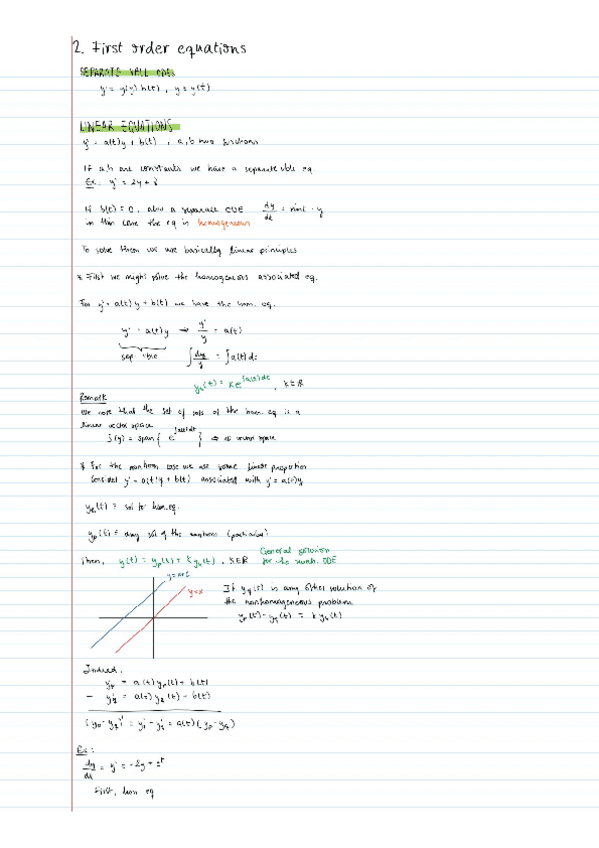 2. First order equations
SEPARABLE ODEs
y' = g(y) h(t) , y = y(t)
LINEAR EQUATIONS
y' = a(t)y + b(t) , a, b two functions
If a, b are constants we have a separable eq.
Ex: y' = 2y + 8
If b(t) = 0, also a separable ODE dy/dt = sint · y
in this case the eq is homogeneous
To solve them we use basically linear principles
First we might solve the homogeneous associated eq.
For y' = a(t)y + b(t) we have the hom. eq.
y' = a(t)y ⇒ y'/y = a(t)
∫ dy/y = ∫ a(t) dt
y_h(t) = k e^{∫a(t)dt} , k ∈ R
Remark
We note that the set of sols of the hom. eq is a
linear vector space
S(y) = span { e^{∫a(t)dt} } ⇒ vector space
For the nonhom case we use some linear properties
Consider y' = a(t)y + b(t) associated with y' = a(t)y
y_h(t) = sol to hom. eq.
y_p(t) = any sol of the nonhom (particular)
Then, y(t) = y_p(t) + k y_h(t) , k ∈ R General solution
for the nonh. ODE
y = x + c
y = x
If y_q(t) is any other solution of
the nonhomogeneous problem
y_p(t) - y_q(t) = k y_h(t)
Indeed,
y_p' = a(t) y_p(t) + b(t)
- y_q' = a(t) y_q(t) - b(t)
(y_p - y_q)' = y_p' - y_q' = a(t)(y_p - y_q)
Ex:
dy/dt = y' = -2y +
First, hom eq